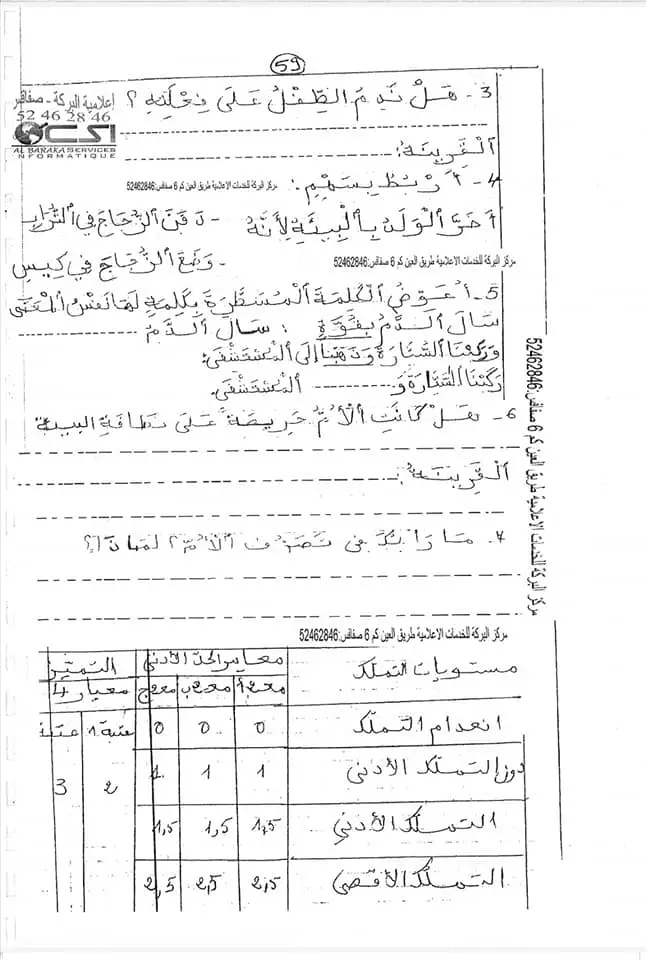 59
3- هَلْ نَدِمَ الطِّفْلُ عَلَى فِعْلَتِهِ ؟
إعلامية البركة - صفاقس
52 46 28 46
CSI
AL BARAKA SERVICES
INFORMATIQUE
القَرِينَةُ:
4- أَرْبُطُ بِسَهْمٍ :
مركز البركة للخدمات الاعلامية طريق العين كم 6 صفاقس:52462846
أَضَرَّ الْوَلَدُ بِالْبِيئَةِ لِأَنَّهُ - دَفَنَ الزُّجَاجَ فِي التُّرَابِ
- وَضَعَ الزُّجَاجَ فِي كِيسٍ
مركز البركة للخدمات الاعلامية طريق العين كم 6 صفاقس:52462846
5- أُعَوِّضُ الْكَلِمَةَ الْمُسَطَّرَةَ بِكَلِمَةٍ لَهَا نَفْسُ الْمَعْنَى
سَالَ الدَّمُ بِقُوَّةٍ : سَالَ الدَّمُ
وَرَكِبْنَا السَّيَّارَةَ وَذَهَبْنَا إِلَى الْمُسْتَشْفَى:
رَكِبْنَا السَّيَّارَةَ وَ الْمُسْتَشْفَى.
6- هَلْ كَانَتِ الْأُمُّ حَرِيصَةً عَلَى نَظَافَةِ البيئة
القَرِينَةُ:
7- مَا رَأْيُكَ فِي تَصَرُّفِ الْأُمِّ؟ لِمَاذَا؟
مركز البركة للخدمات الاعلامية طريق العين كم 6 صفاقس:52462846
مركز البركة للخدمات الاعلامية طريق العين كم 6 صفاقس:52462846
مستويات التملك معايير الحد الأدنى التميز
مع أ مع ب مع ج معيار 4
انعدام التملك 0 0 0 عتبة 1 عتبة
دون التملك الأدنى 1 1 1 2 3
التملك الأدنى 1,5 1,5 1,5
التملك الأقصى 2,5 2,5 2,5